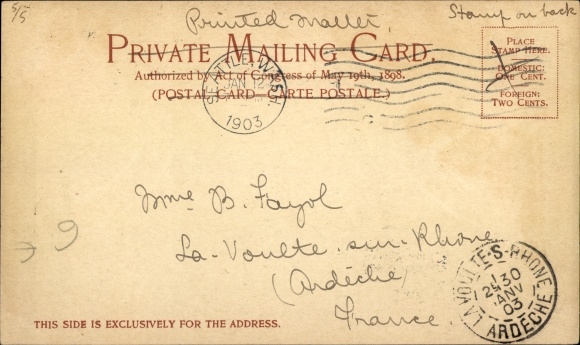 5/5
Printed Matter.
Stamp on back
PRIVATE MAILING CARD.
Authorized by Act of Congress of May 19th, 1898.
(POSTAL CARD—CARTE POSTALE.)
PLACE
STAMP HERE.
DOMESTIC:
ONE CENT.
FOREIGN:
TWO CENTS.
SEATTLE, WASH.
JAN 12
1903
Mme B. Fayol
La-Voulte-sur-Rhone
(Ardèche)
France.
6
LA VOULTE-S-RHONE
30
JANV
03
ARDÈCHE
THIS SIDE IS EXCLUSIVELY FOR THE ADDRESS.